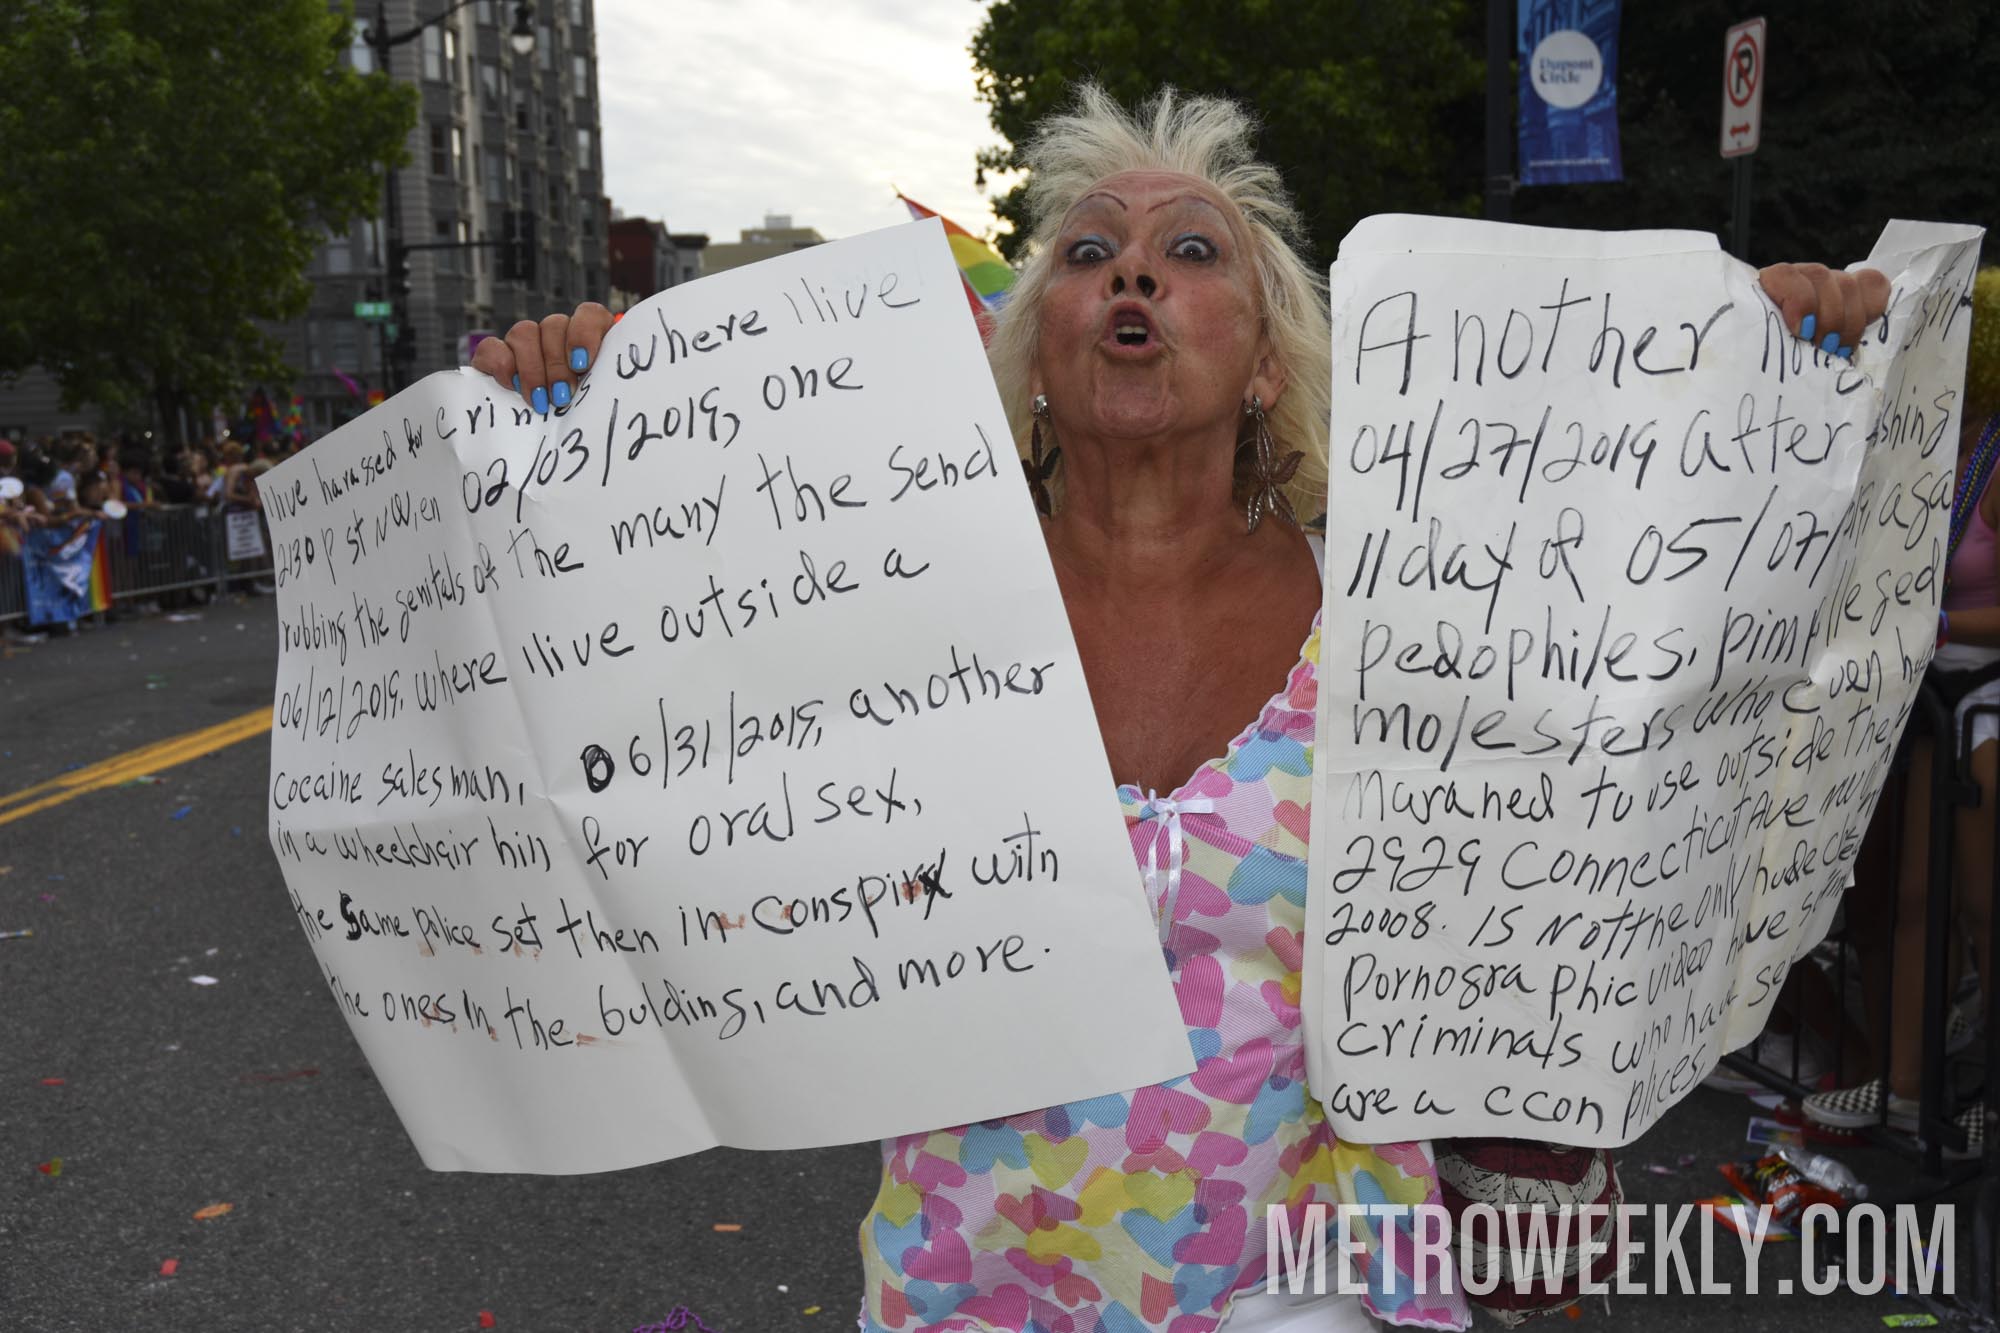 I live harassed for crimes where I live
2130 P st NW, en 02/03/2019, one
rubbing the genitals of the many the send
06/12/2019, where I live outside a
cocaine salesman, 06/31/2019, another
in a wheelchair for oral sex,
the same police set then in conspir with
the ones in the bulding, and more.
Another
04/27/2019 after
11 day of 05/07/
pedophiles, pim
molesters who
to use outside the
2929 Connecticut Ave NW
20008. is Not the only nude
pornographic video have
criminals who have
are a ccomplices,
Dupont
Circle
P
METROWEEKLY.COM